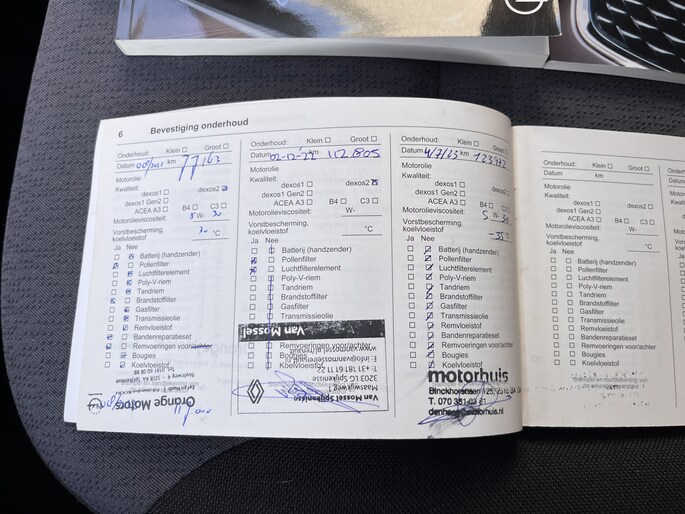 6 Bevestiging onderhoud
Onderhoud: Klein Groot
Datum km 77163
Motorolie
Kwaliteit:
dexos1 dexos2
dexos1 Gen2
ACEA A3 B4 C3
Motorolieviscositeit: 5 W- 30
Vorstbescherming,
koelvloeistof 30 °C
Ja Nee
Batterij (handzender)
Pollenfilter
Luchtfilterelement
Poly-V-riem
Tandriem
Brandstoffilter
Gasfilter
Transmissieolie
Remvloeistof
Bandenreparatieset
Remvoeringen voor/achter
Bougies
Koelvloeistof
Orange Motors
Onderhoud: Klein Groot
Datum 02-12-22 km 112.805
Motorolie
Kwaliteit:
dexos1 dexos2
dexos1 Gen2
ACEA A3 B4 C3
Motorolieviscositeit: W-
Vorstbescherming,
koelvloeistof °C
Ja Nee
Batterij (handzender)
Pollenfilter
Luchtfilterelement
Poly-V-riem
Tandriem
Brandstoffilter
Gasfilter
Transmissieolie
Van Mossel
Remvoeringen voor/achter
Bougies
Koelvloeistof
Van Mossel Spijkenisse
Maaswijkweg
3202 LC Spijkenisse
Onderhoud: Klein Groot
Datum 4/7/23 km
Motorolie
Kwaliteit:
dexos1 dexos2
dexos1 Gen2
ACEA A3 B4 C3
Motorolieviscositeit: 5 W- 30
Vorstbescherming,
koelvloeistof -35 °C
Ja Nee
Batterij (handzender)
Pollenfilter
Luchtfilterelement
Poly-V-riem
Tandriem
Brandstoffilter
Gasfilter
Transmissieolie
Remvloeistof
Bandenreparatieset
Remvoeringen voor/achter
Bougies
Koelvloeistof
motorhuis
T. 070
denhaag@motorhuis.nl
Onderhoud: Klein Groot
Datum km
Motorolie
Kwaliteit:
dexos1 dexos2
dexos1 Gen2
ACEA A3 B4 C3
Motorolieviscositeit: W-
Vorstbescherming,
koelvloeistof °C
Ja Nee
Batterij (handzender)
Pollenfilter
Luchtfilterelement
Poly-V-riem
Tandriem
Brandstoffilter
Gasfilter
Transmissieolie
Remvloeistof
Bandenreparatieset
Remvoeringen voor/achter
Bougies
Koelvloeistof